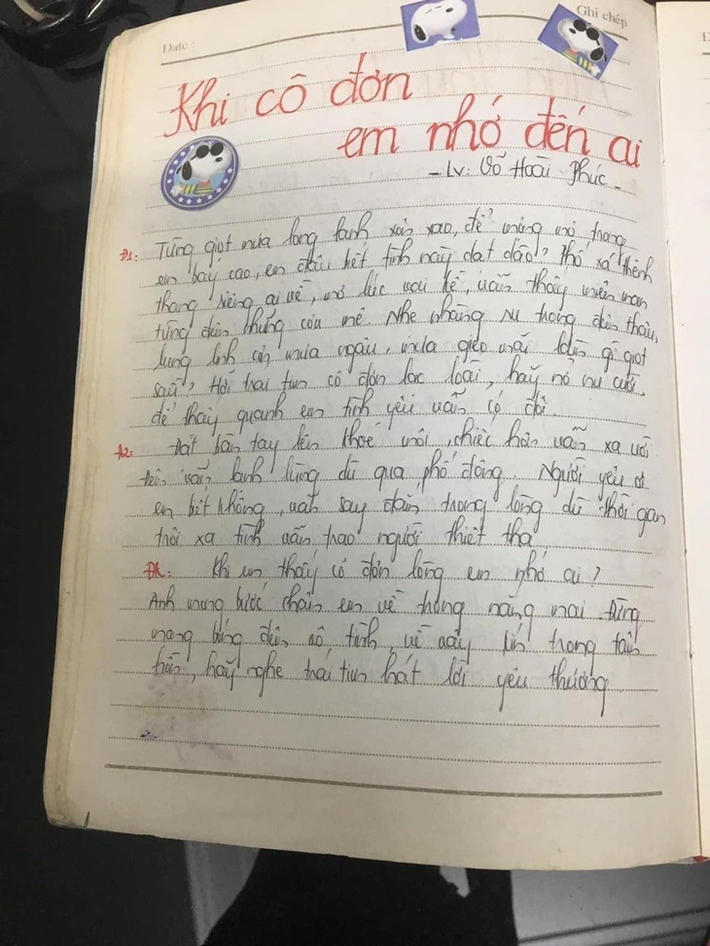 Date :
Ghi chép
Khi cô đơn
em nhớ đến ai
- Lv: Võ Hoài Phúc -
Đ1: Từng giọt mưa long lanh xôn xao, để mộng mơ trong
em bay cao, em đâu biết tình này dạt dào? Phố xá thênh
thang riêng ai về, mơ lúc vai kề, vẫn thấy miên man
từng đêm những cơn mê. Nhẹ nhàng ru trong đêm thâu,
lung linh cơn mưa ngâu, mưa gieo mãi lên gì giọt
sầu? Hỡi trai tim cô đơn lạc loài, hãy nở nụ cười,
để thấy quanh em tình yêu vẫn có đôi.
Đ2: Đặt bàn tay lên khoé môi, chiếc hôn vẫn xa vời
Đêm vẫn lạnh lùng dù qua phố đông. Người yêu ơi
em biết không, vẫn say đắm trong lòng dù thời gian
trôi xa tình vẫn trao người thiết tha
ĐK: Khi em thấy cô đơn lòng em nhớ ai?
Anh mang bước chân em về trong nắng mai. Đừng
mang bóng đêm vô tình, về vây kín trong tâm
hồn, hãy nghe trái tim hát lời yêu thương